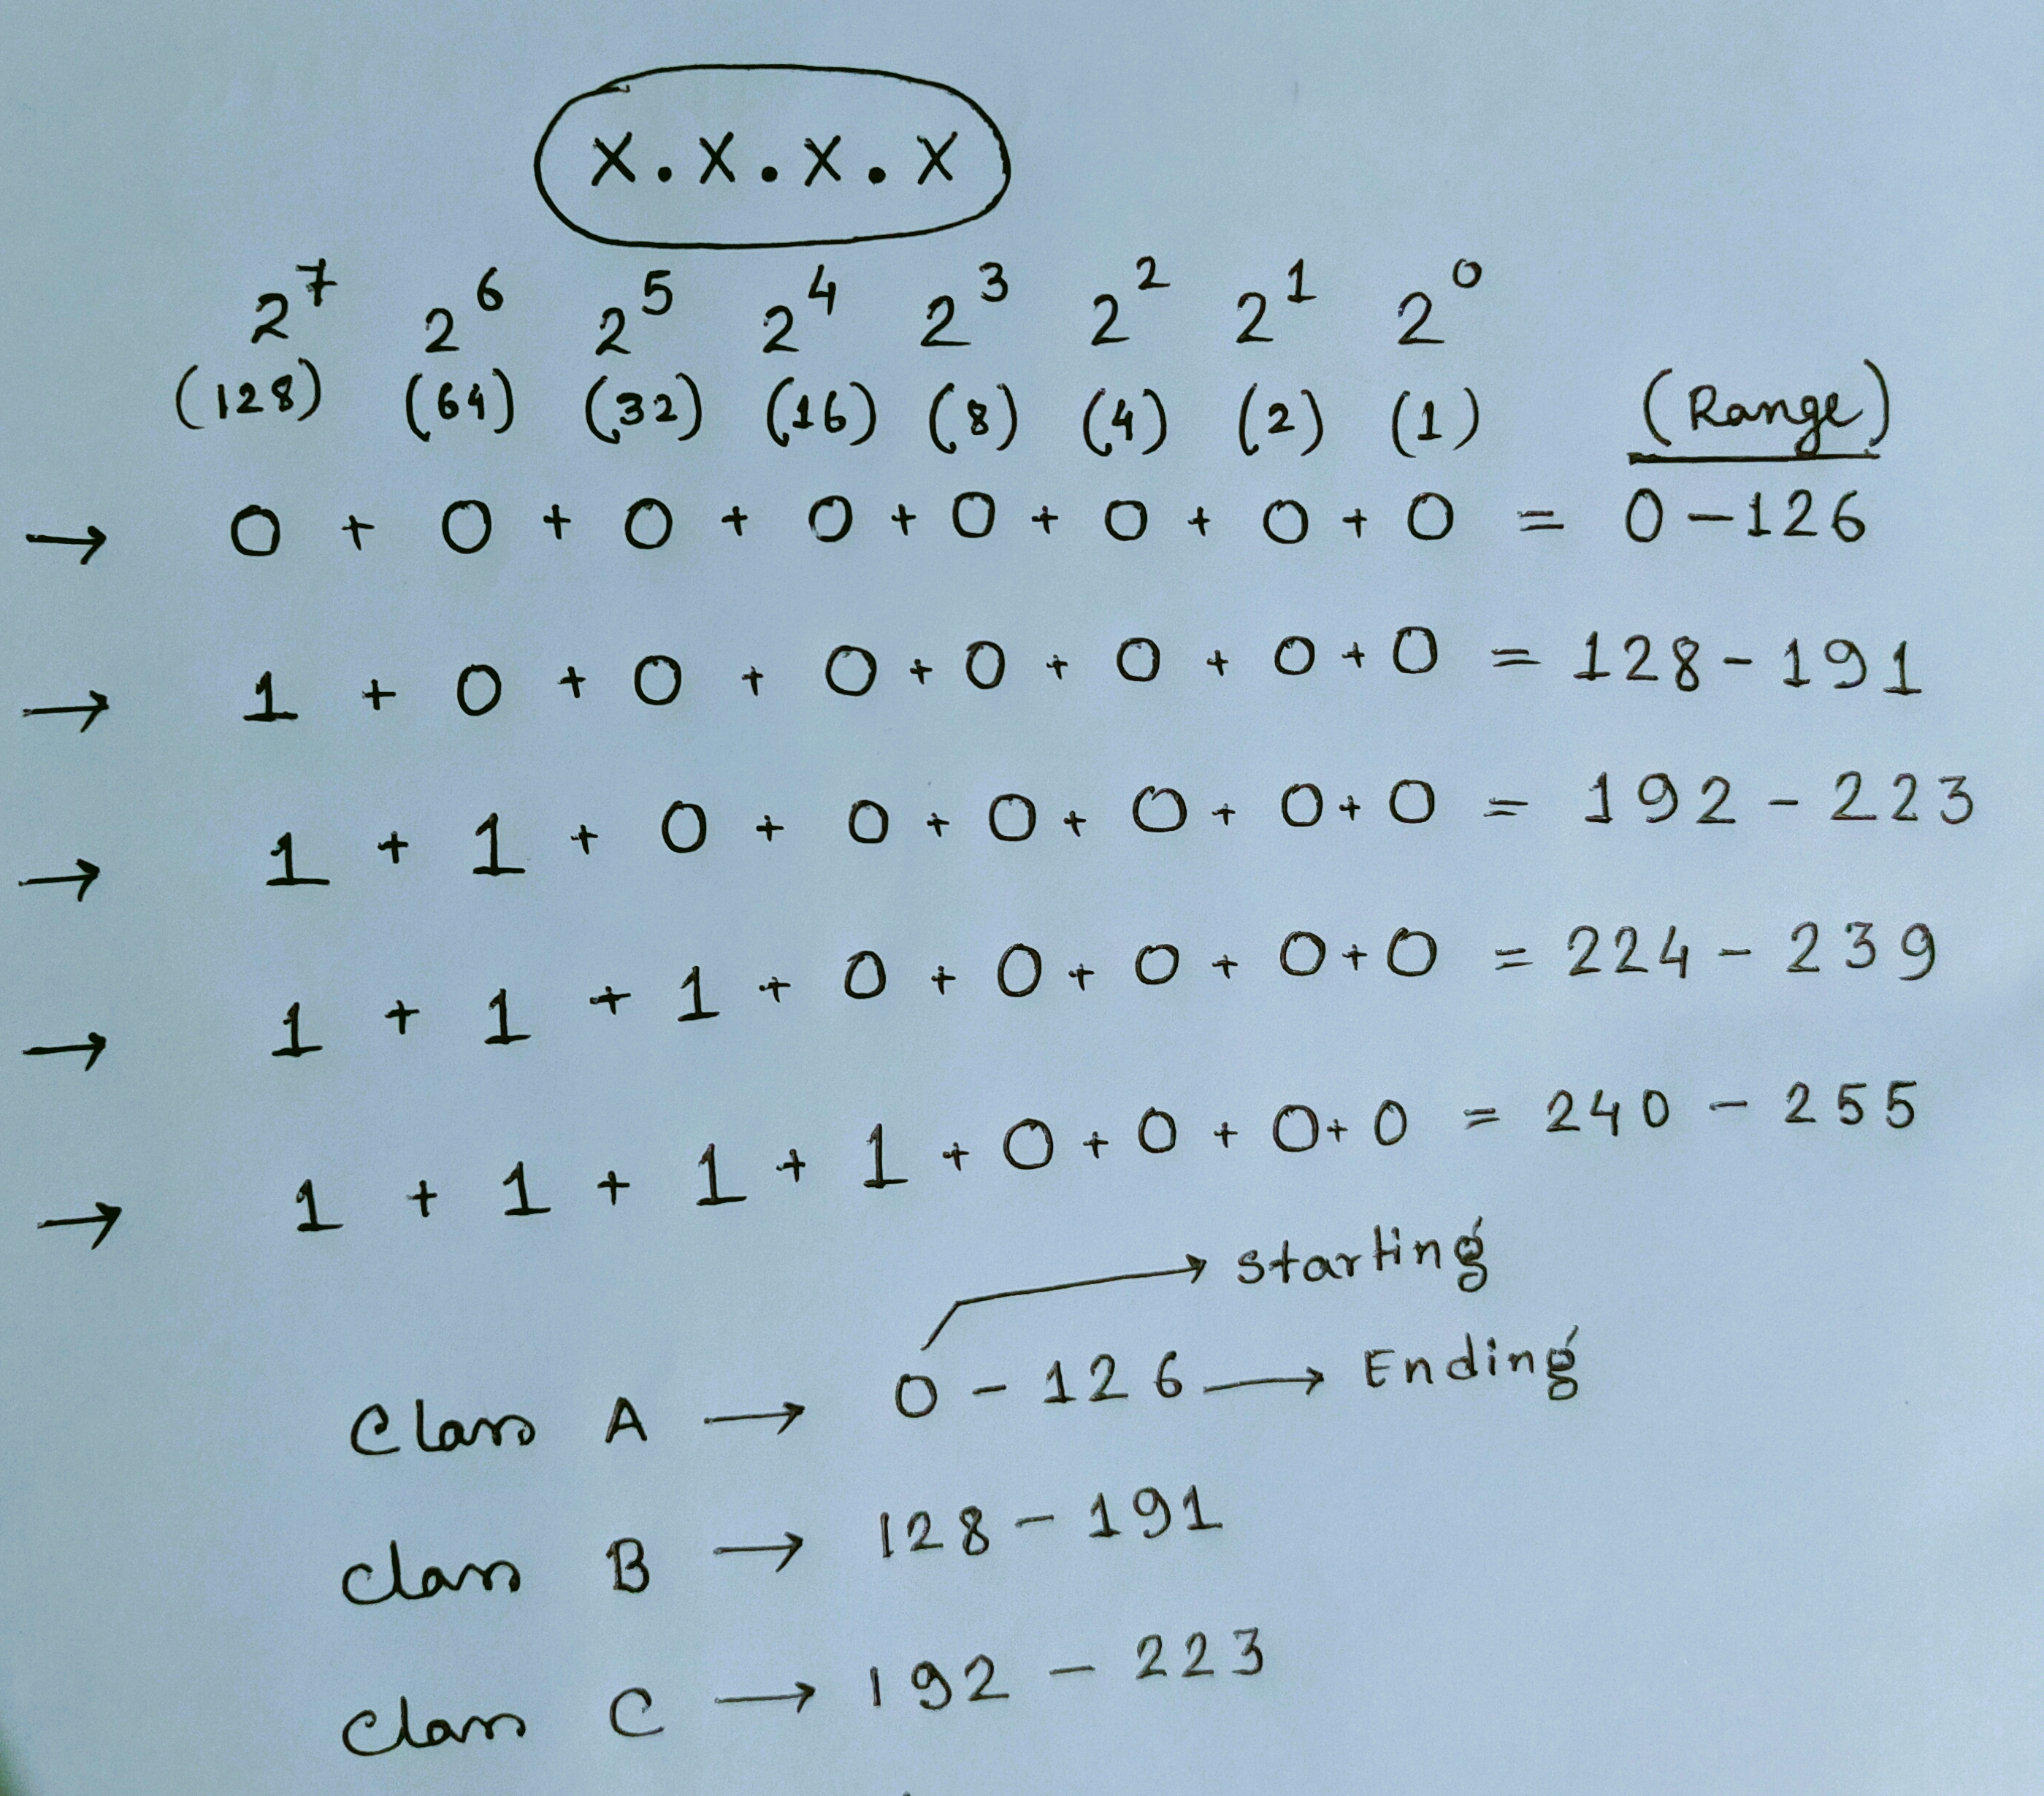 X.X.X.X
2⁷ 2⁶ 2⁵ 2⁴ 2³ 2² 2¹ 2⁰
(128) (64) (32) (16) (8) (4) (2) (1) (Range)
→ 0 + 0 + 0 + 0 + 0 + 0 + 0 + 0 = 0 - 126
→ 1 + 0 + 0 + 0 + 0 + 0 + 0 + 0 = 128 - 191
→ 1 + 1 + 0 + 0 + 0 + 0 + 0 + 0 = 192 - 223
→ 1 + 1 + 1 + 0 + 0 + 0 + 0 + 0 = 224 - 239
→ 1 + 1 + 1 + 1 + 0 + 0 + 0 + 0 = 240 - 255
→ starting
Class A → 0 - 126 → Ending
Class B → 128 - 191
Class C → 192 - 223